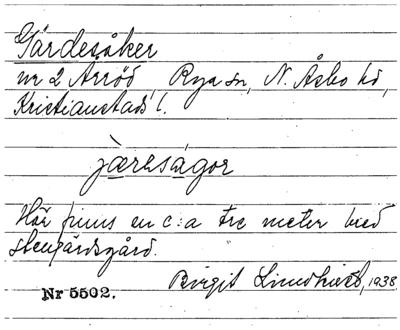 Gärdesåker
nr 2 Arröd Rya sn, N. Åsbo hd,
Kristianstads l.
Här finns en c:a tre meter bred
stengärdsgård.
Birgit 1938
Nr 5502.